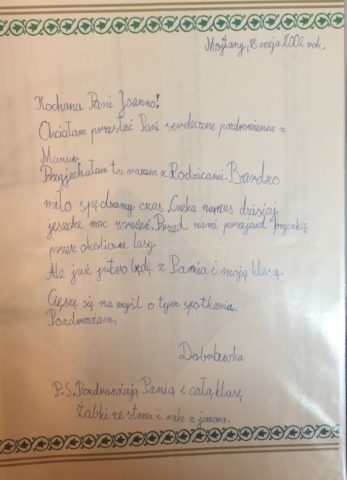 18 maja 2002 rok.
Kochana Pani Joanno!
Chciałam przesłać Pani serdeczne pozdrowienia z
Przyjechałam tu razem z Rodzicami. Bardzo
miło spędzamy czas. Czeka na nas dzisiaj
jeszcze moc wrażeń. Przed nami przejazd bryczką
przez okoliczne lasy.
Ale już jutro będę z Panią i moją klasą.
Cieszę się na myśl o tym spotkaniu.
Pozdrawiam,
Dobrawka
P.S. Pozdrawiają Panią z całą klasą
Żabki ze stawu i raki z jeziora.